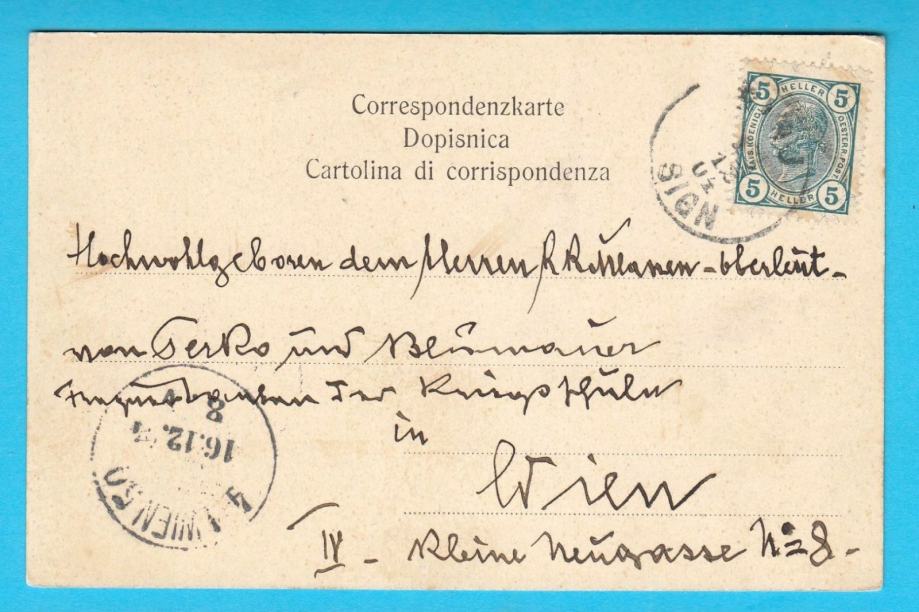 Correspondenzkarte
Dopisnica
Cartolina di corrispondenza
5 HELLER 5
KAIS. KOENIGL. OESTERR. POST
5 HELLER 5
SIGN
Hochwohlgeboren dem Herren k k Uhlanen-Oberleut-
von Terko und Blümauer
Frequentanten der Kriegsschule
in
Wien
IV - Kleine Neugasse No 8 -
8
16.12.
WIEN 50